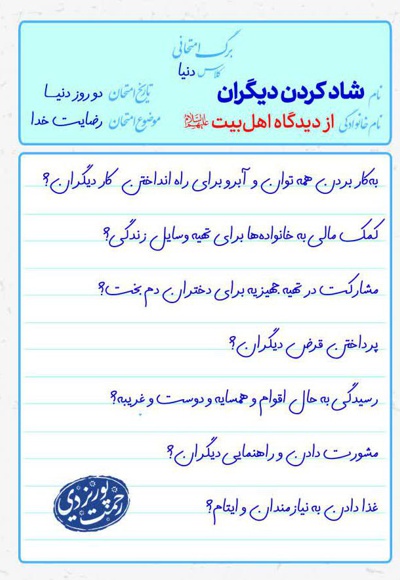 برگ امتحانی
کلاس دنیا
نام شاد کردن دیگران تاریخ امتحان دو روز دنیا
نام خانوادگی از دیدگاه اهل‌بیت علیهم‌السلام موضوع امتحان رضایت خدا
به‌کار بردن همه توان و آبرو برای راه انداختن کار دیگران؟
کمک مالی به خانواده‌ها برای تهیه وسایل زندگی؟
مشارکت در تهیه جهیزیه برای دختران دم بخت؟
پرداختن قرض دیگران؟
رسیدگی به حال اقوام و همسایه و دوست و غریبه؟
مشورت دادن و راهنمایی دیگران؟
غذا دادن به نیازمندان و ایتام؟
حجت پوریزدی